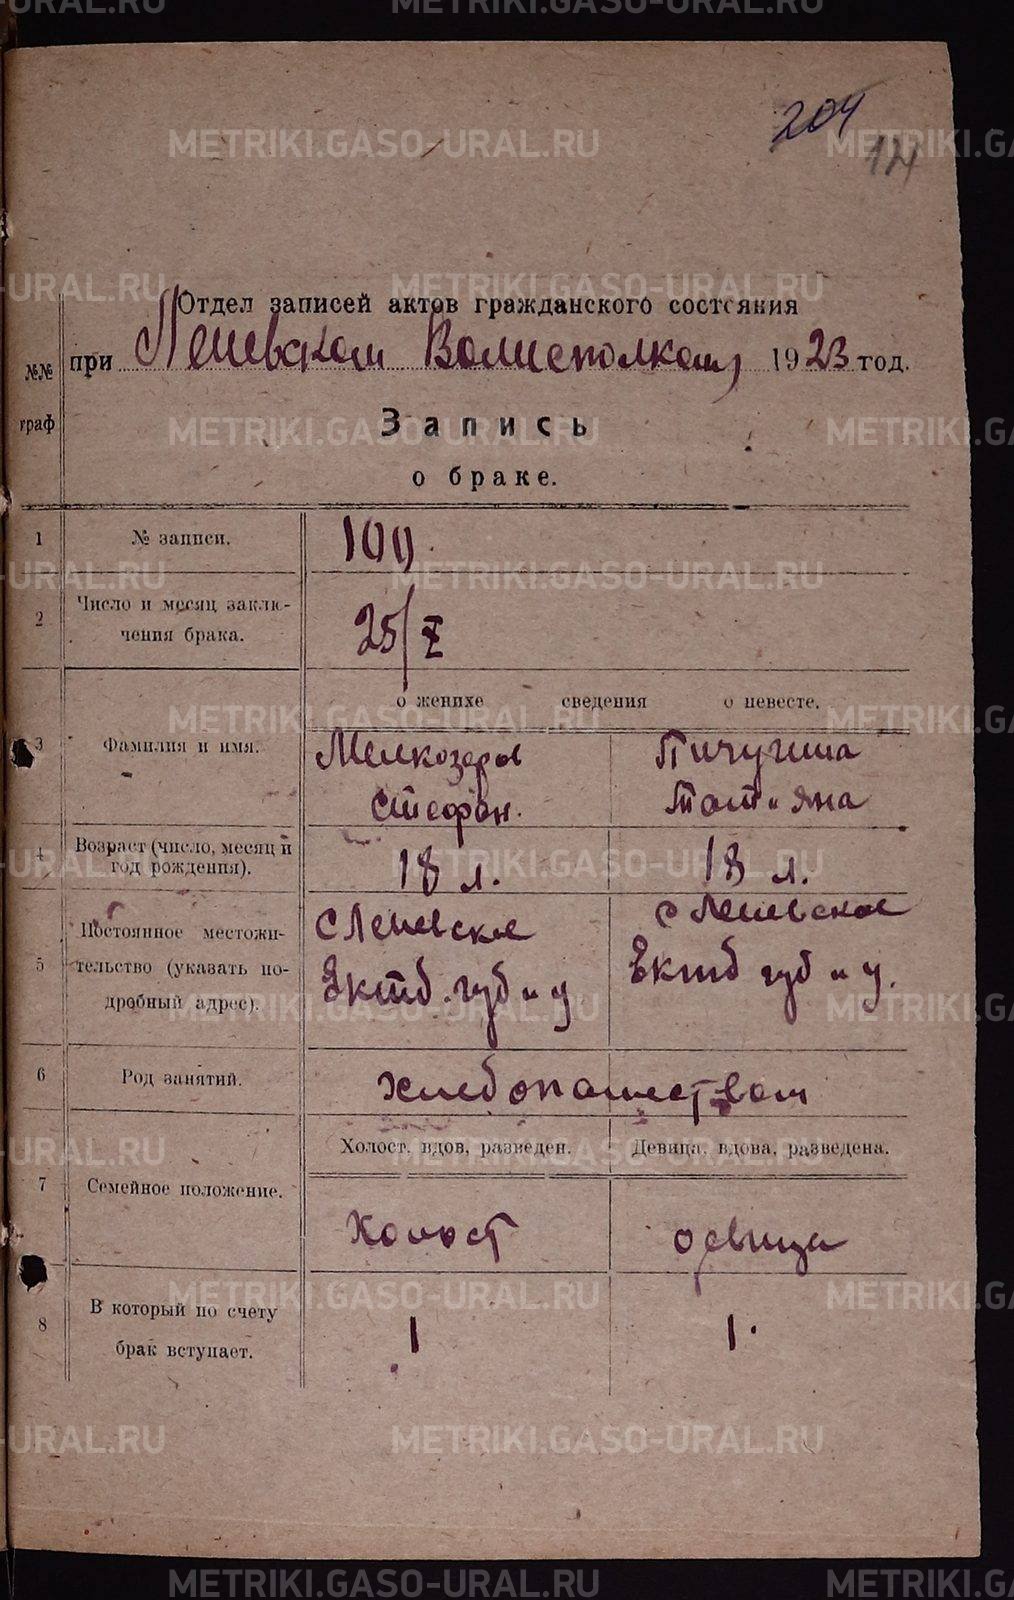 204
124
Отдел записей актов гражданского состояния
при Леневском Волисполкому 1923 год.
№№ граф
Запись
о браке.
1 № записи. 109.
2 Число и месяц заклю-
чения брака. 25/X
о женихе сведения о невесте.
3 Фамилия и имя. Мелкозеров Пичугина
Стефан. Татияна
4 Возраст (число, месяц и
год рождения). 18 л. 18 л.
5 Постоянное местожи-
тельство (указать по-
дробный адрес). с Леневское с Леневское
Ектб. губ и у Ектб губ и у.
6 Род занятий. Хлебопашеством
Холост, вдов, разведен. Девица, вдова, разведена.
7 Семейное положение. Холост девица
8 В который по счету
брак вступает. 1 1.
METRIKI.GASO-URAL.RU